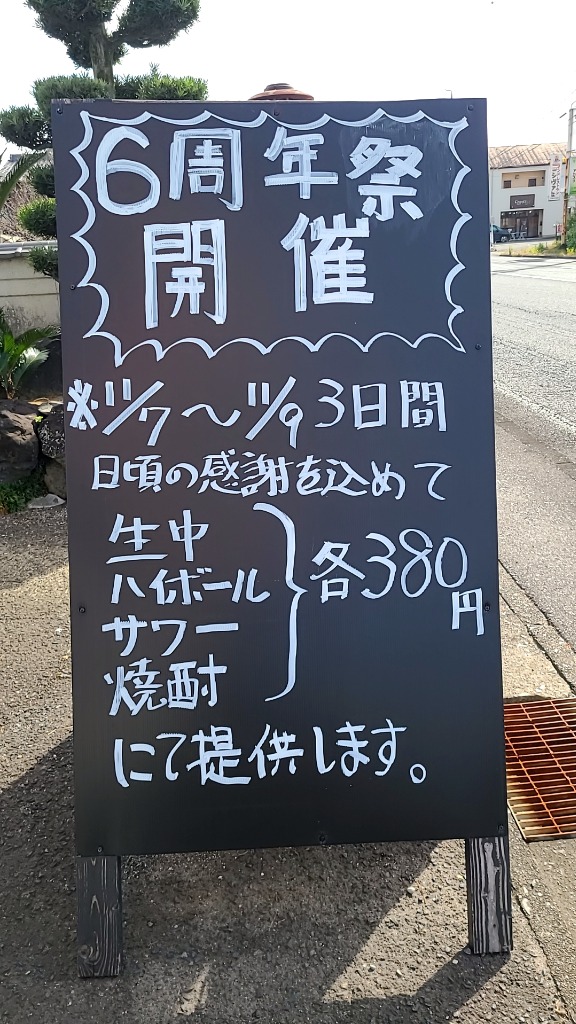 6周年祭
開催
※11/7〜11/9 3日間
日頃の感謝を込めて
生中
ハイボール
サワー
焼酎
各380円
にて提供します。